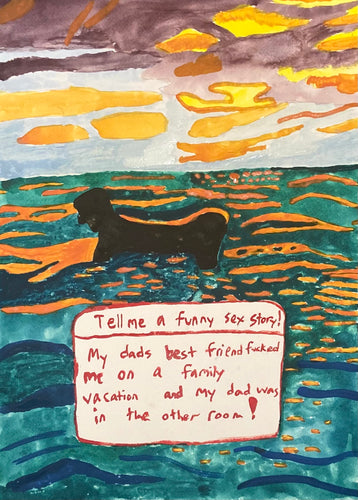 Tell me a funny sex story!
My dads best friend fucked
me on a family
vacation and my dad was
in the other room!